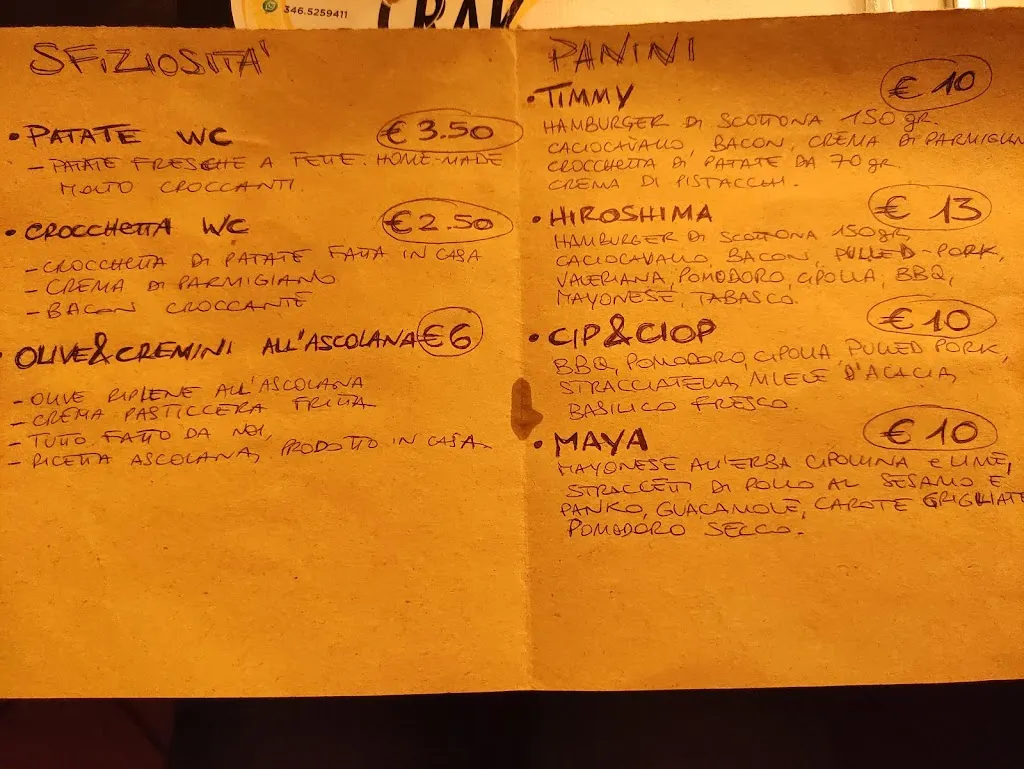 346.5259411
SFIZIOSITA'
• PATATE WC € 3.50
- PATATE FRESCHE A FETTE HOME-MADE
MOLTO CROCCANTI.
• CROCCHETTA WC € 2.50
- CROCCHETTA DI PATATE FATTA IN CASA
- CREMA DI PARMIGIANO
- BACON CROCCANTE
• OLIVE&CREMINI ALL'ASCOLANA € 6
- OLIVE RIPIENE ALL'ASCOLANA
- CREMA PASTICCERA FRITTA
- TUTTO FATTO DA NOI,
- RICETTA ASCOLANA, PRODOTTO IN CASA.
PANINI
• TIMMY € 10
HAMBURGER DI SCOTTONA 150 gr.
CACIOCAVALLO, BACON, CREMA DI PARMIGIAN
CROCCHETTA DI PATATE DA 70 gr
CREMA DI PISTACCHI.
• HIROSHIMA € 13
HAMBURGER DI SCOTTONA 150gr
CACIOCAVALLO, BACON, PULLED-PORK,
VALERIANA, POMODORO, CIPOLLA, BBQ,
MAYONESE, TABASCO.
• CIP&CIOP € 10
BBQ, POMODORO, CIPOLLA PULLED PORK,
STRACCIATELLA, MIELE D'ACACIA,
BASILICO FRESCO.
• MAYA € 10
MAYONESE ALL'ERBA CIPOLLINA e LIME,
STRACCETTI DI POLLO AL SESAMO E
PANKO, GUACAMOLE, CAROTE GRIGLIATE
POMODORO SECCO.